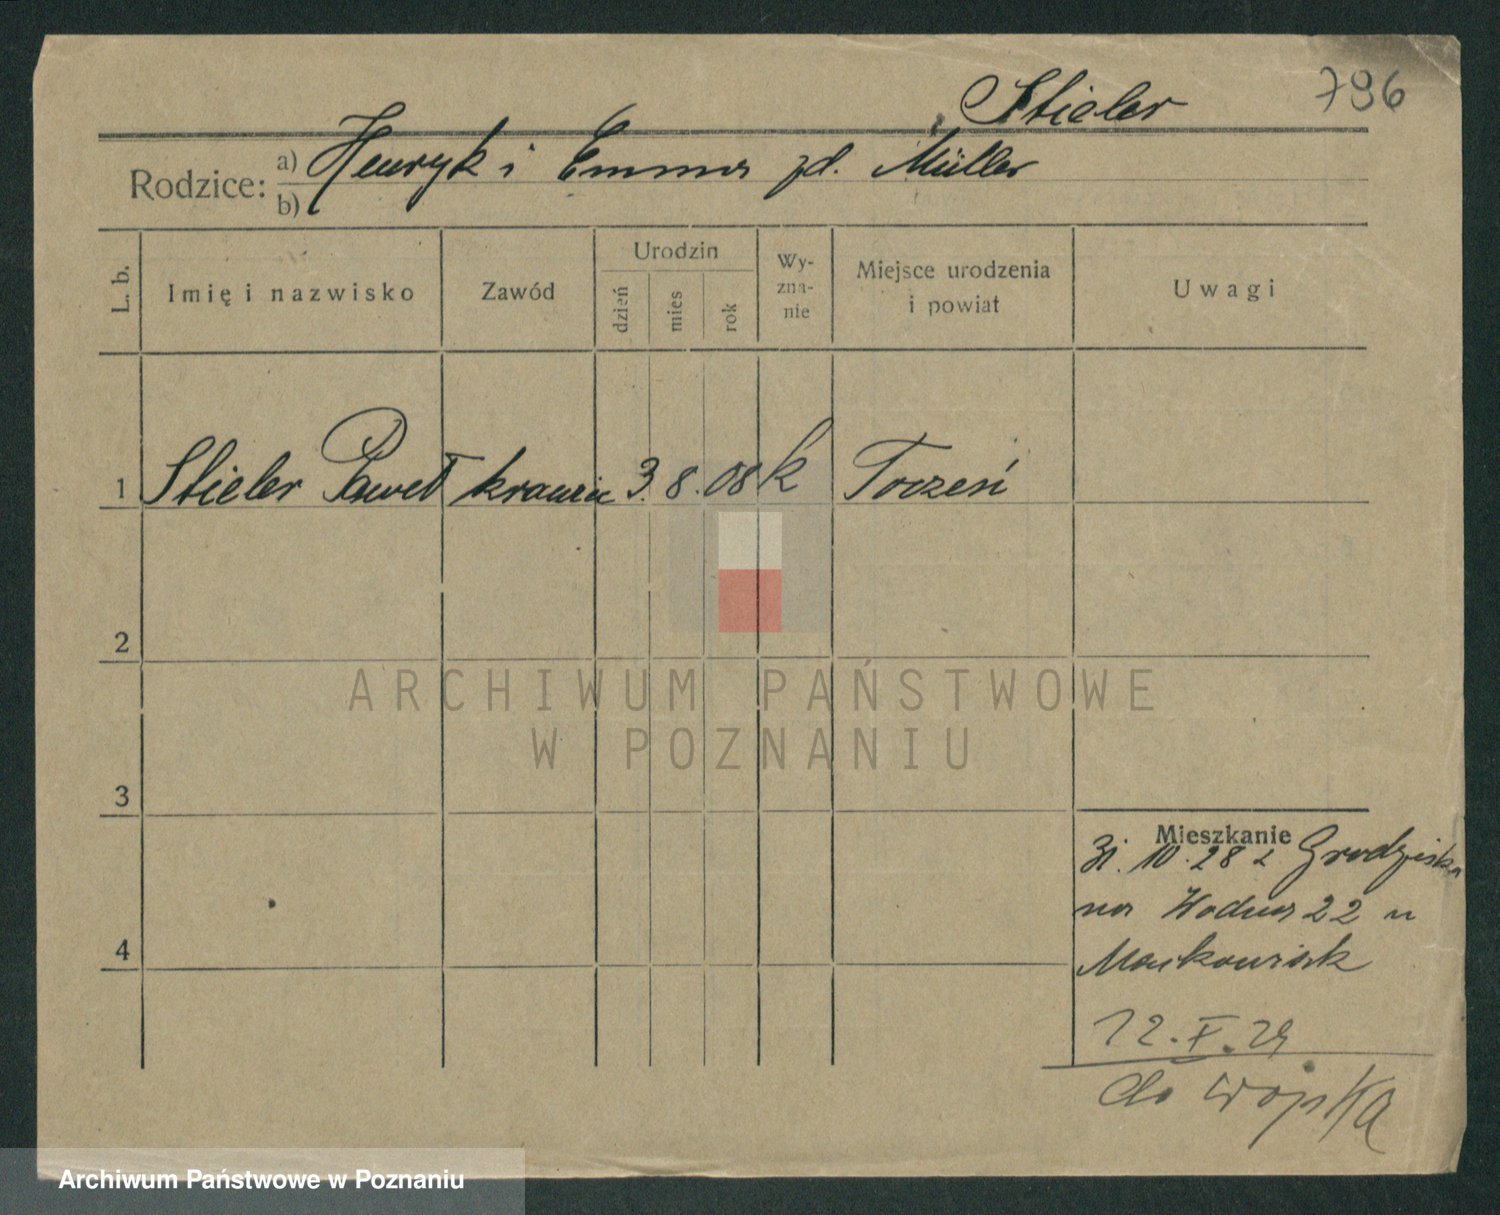 796
Stieler
Rodzice: a) Henryk i Emma zd. Müller
b)
L. b.
Imię i nazwisko
Zawód
Urodzin
dzień
mies
rok
Wy-
zna-
nie
Miejsce urodzenia
i powiat
Uwagi
1 Stieler Paweł krawiec 3. 8. 08 k Toczeń
2
3
4
Mieszkanie
31. 10. 28 z Grodziska
na Wodna 22 u
12. X. 29
do wojska
ARCHIWUM PAŃSTWOWE
W POZNANIU
Archiwum Państwowe w Poznaniu